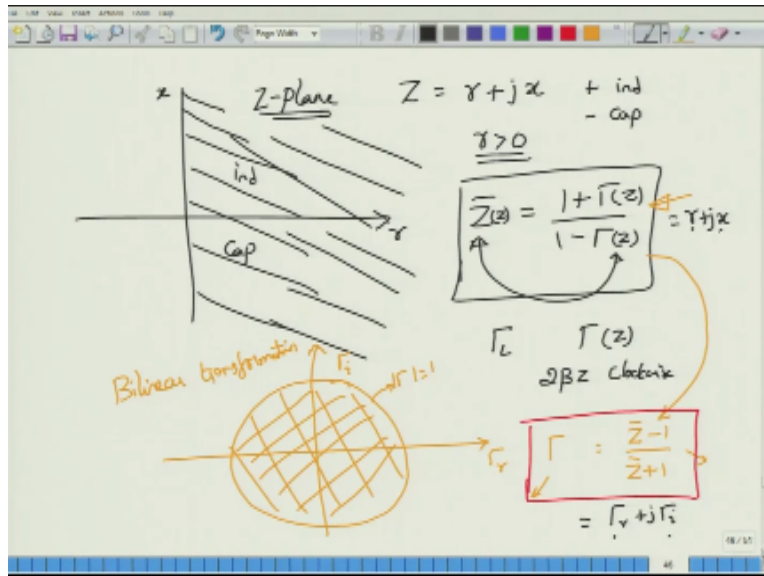 Page Width
B I
x Z-plane Z = r + jx + ind
- cap
r>0
ind
r
cap
Z̅(z) = 1+Γ(z) / 1-Γ(z) = r+jx
ΓL Γ(z)
2βz clockwise
Bilinear transformation
Γi
|Γ|=1
Γr
Γ = Z̅-1 / Z̅+1
= Γr + jΓi
46